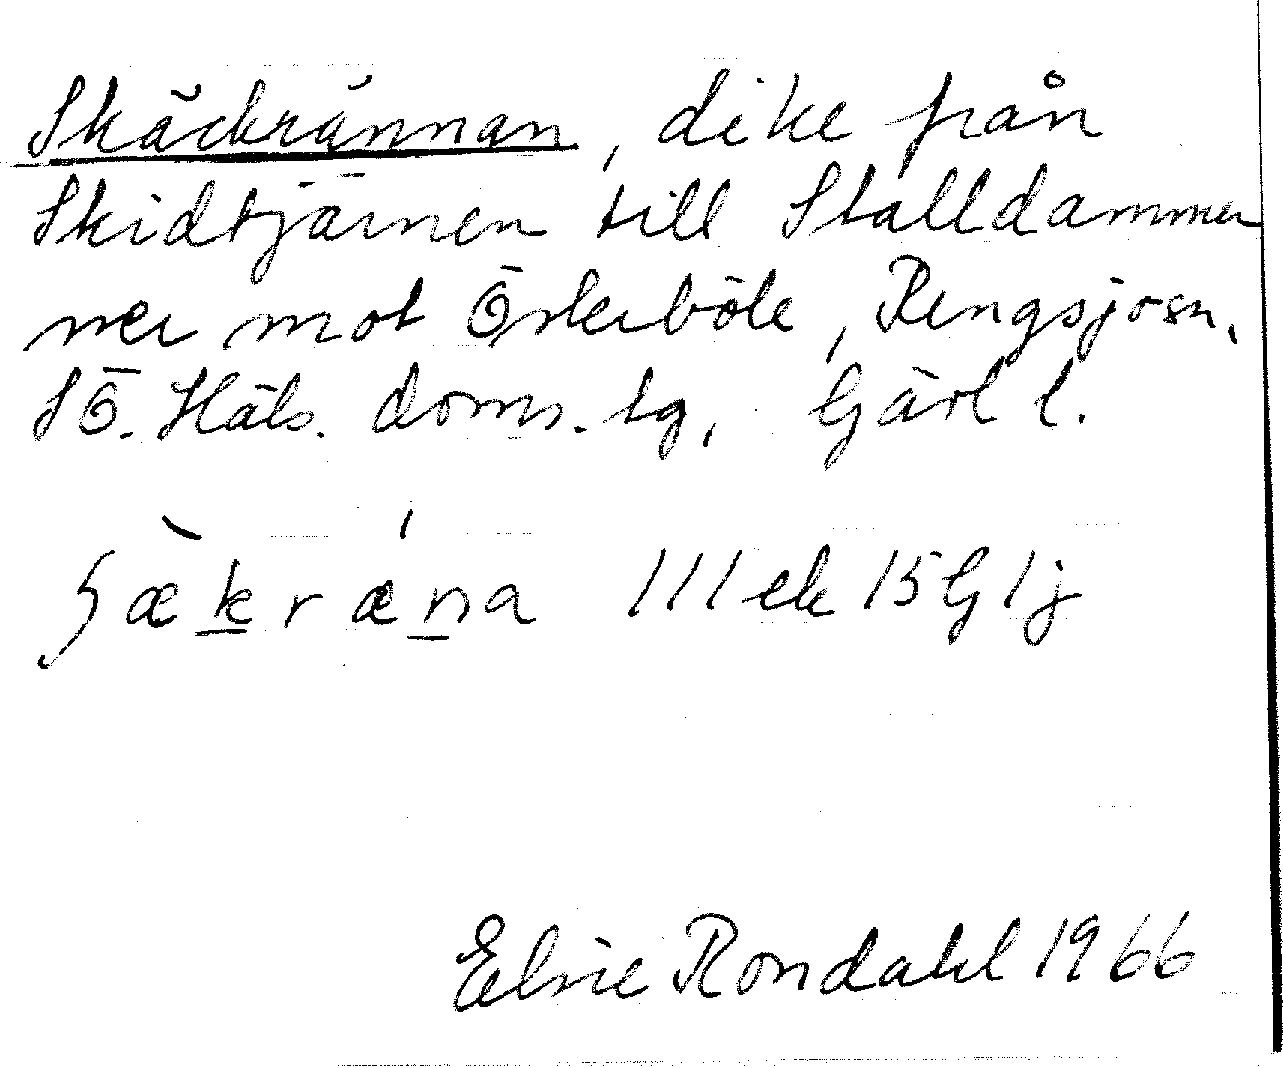 Skäckrännan, dike från
Skidtjärnen till Stalldammen
ner mot Österböle, Rengsjösn.
SÖ. Häls. doms. tg, Gävl l.
ʃækræna 111 ek 15 G 1j
Elsie Rondahl 1966